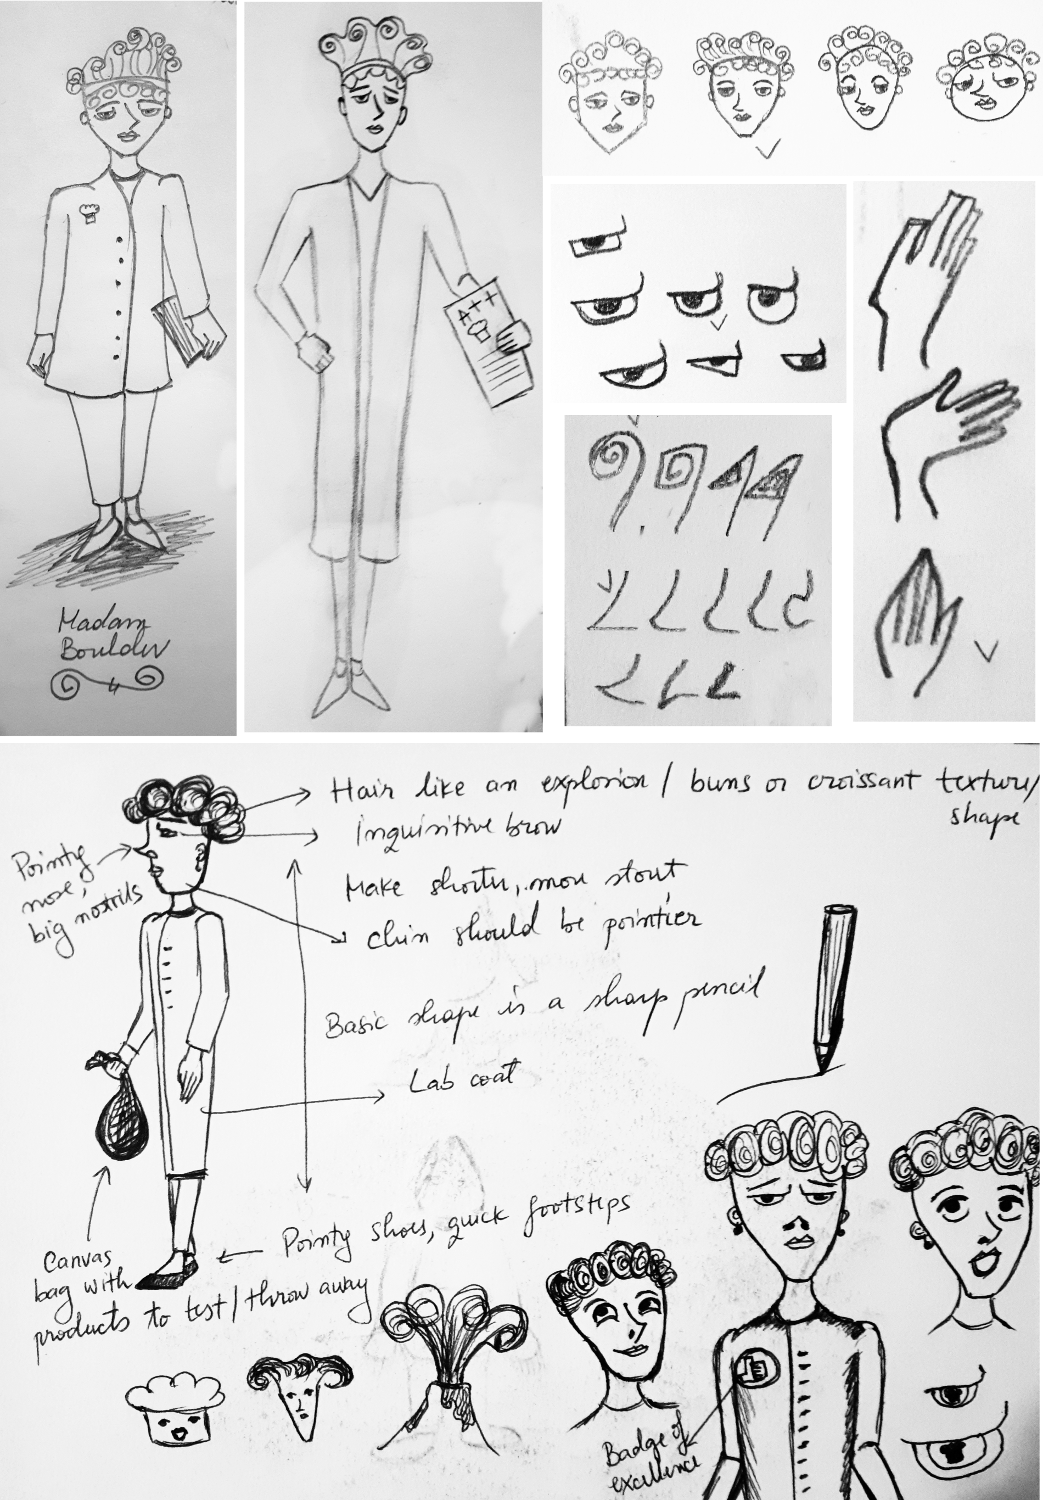 Madam
Boulder
A++
Hair like an explosion / buns or croissant texture/
shape
inquisitive brow
Pointy
nose,
big nostrils
Make shorter, more stout
chin should be pointier
Basic shape is a sharp pencil
Lab coat
Pointy shoes, quick footsteps
Canvas
bag with
products to test / throw away
Badge of
excellence